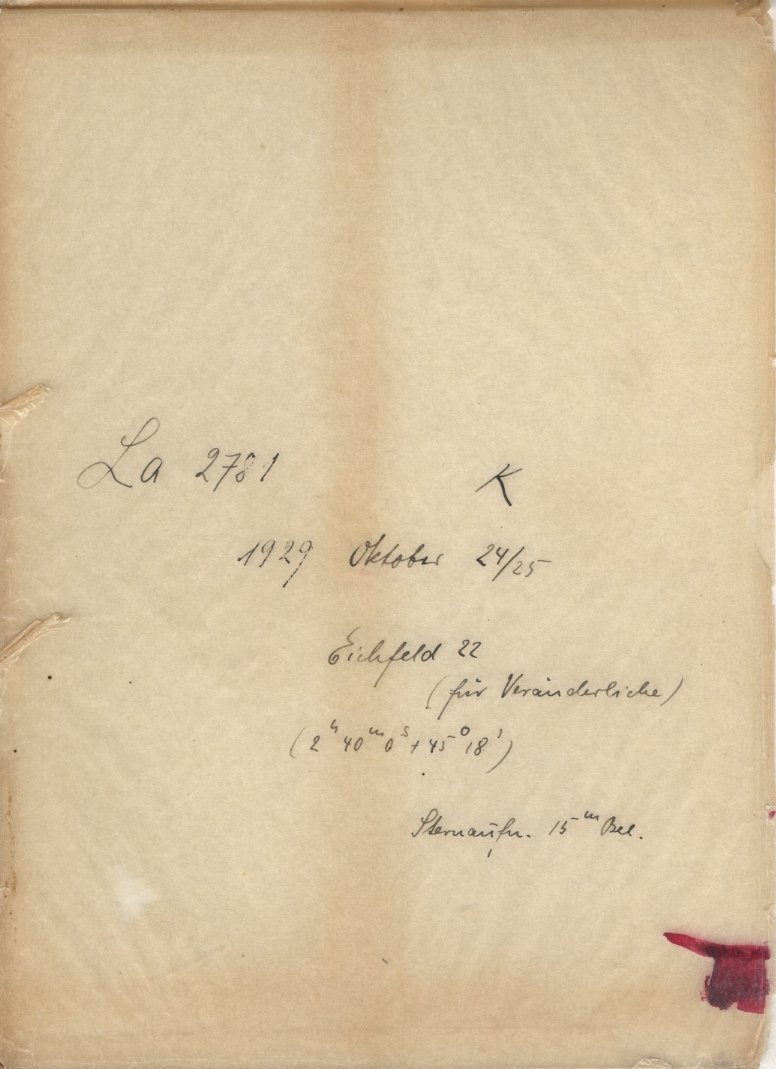 La 2781 K
1929 Oktober 24/25
Eichfeld 22
(für Veränderliche)
(2ʰ 40ᵐ 0ˢ + 45° 18')
Sternaufn. 15ᵐ Bel.